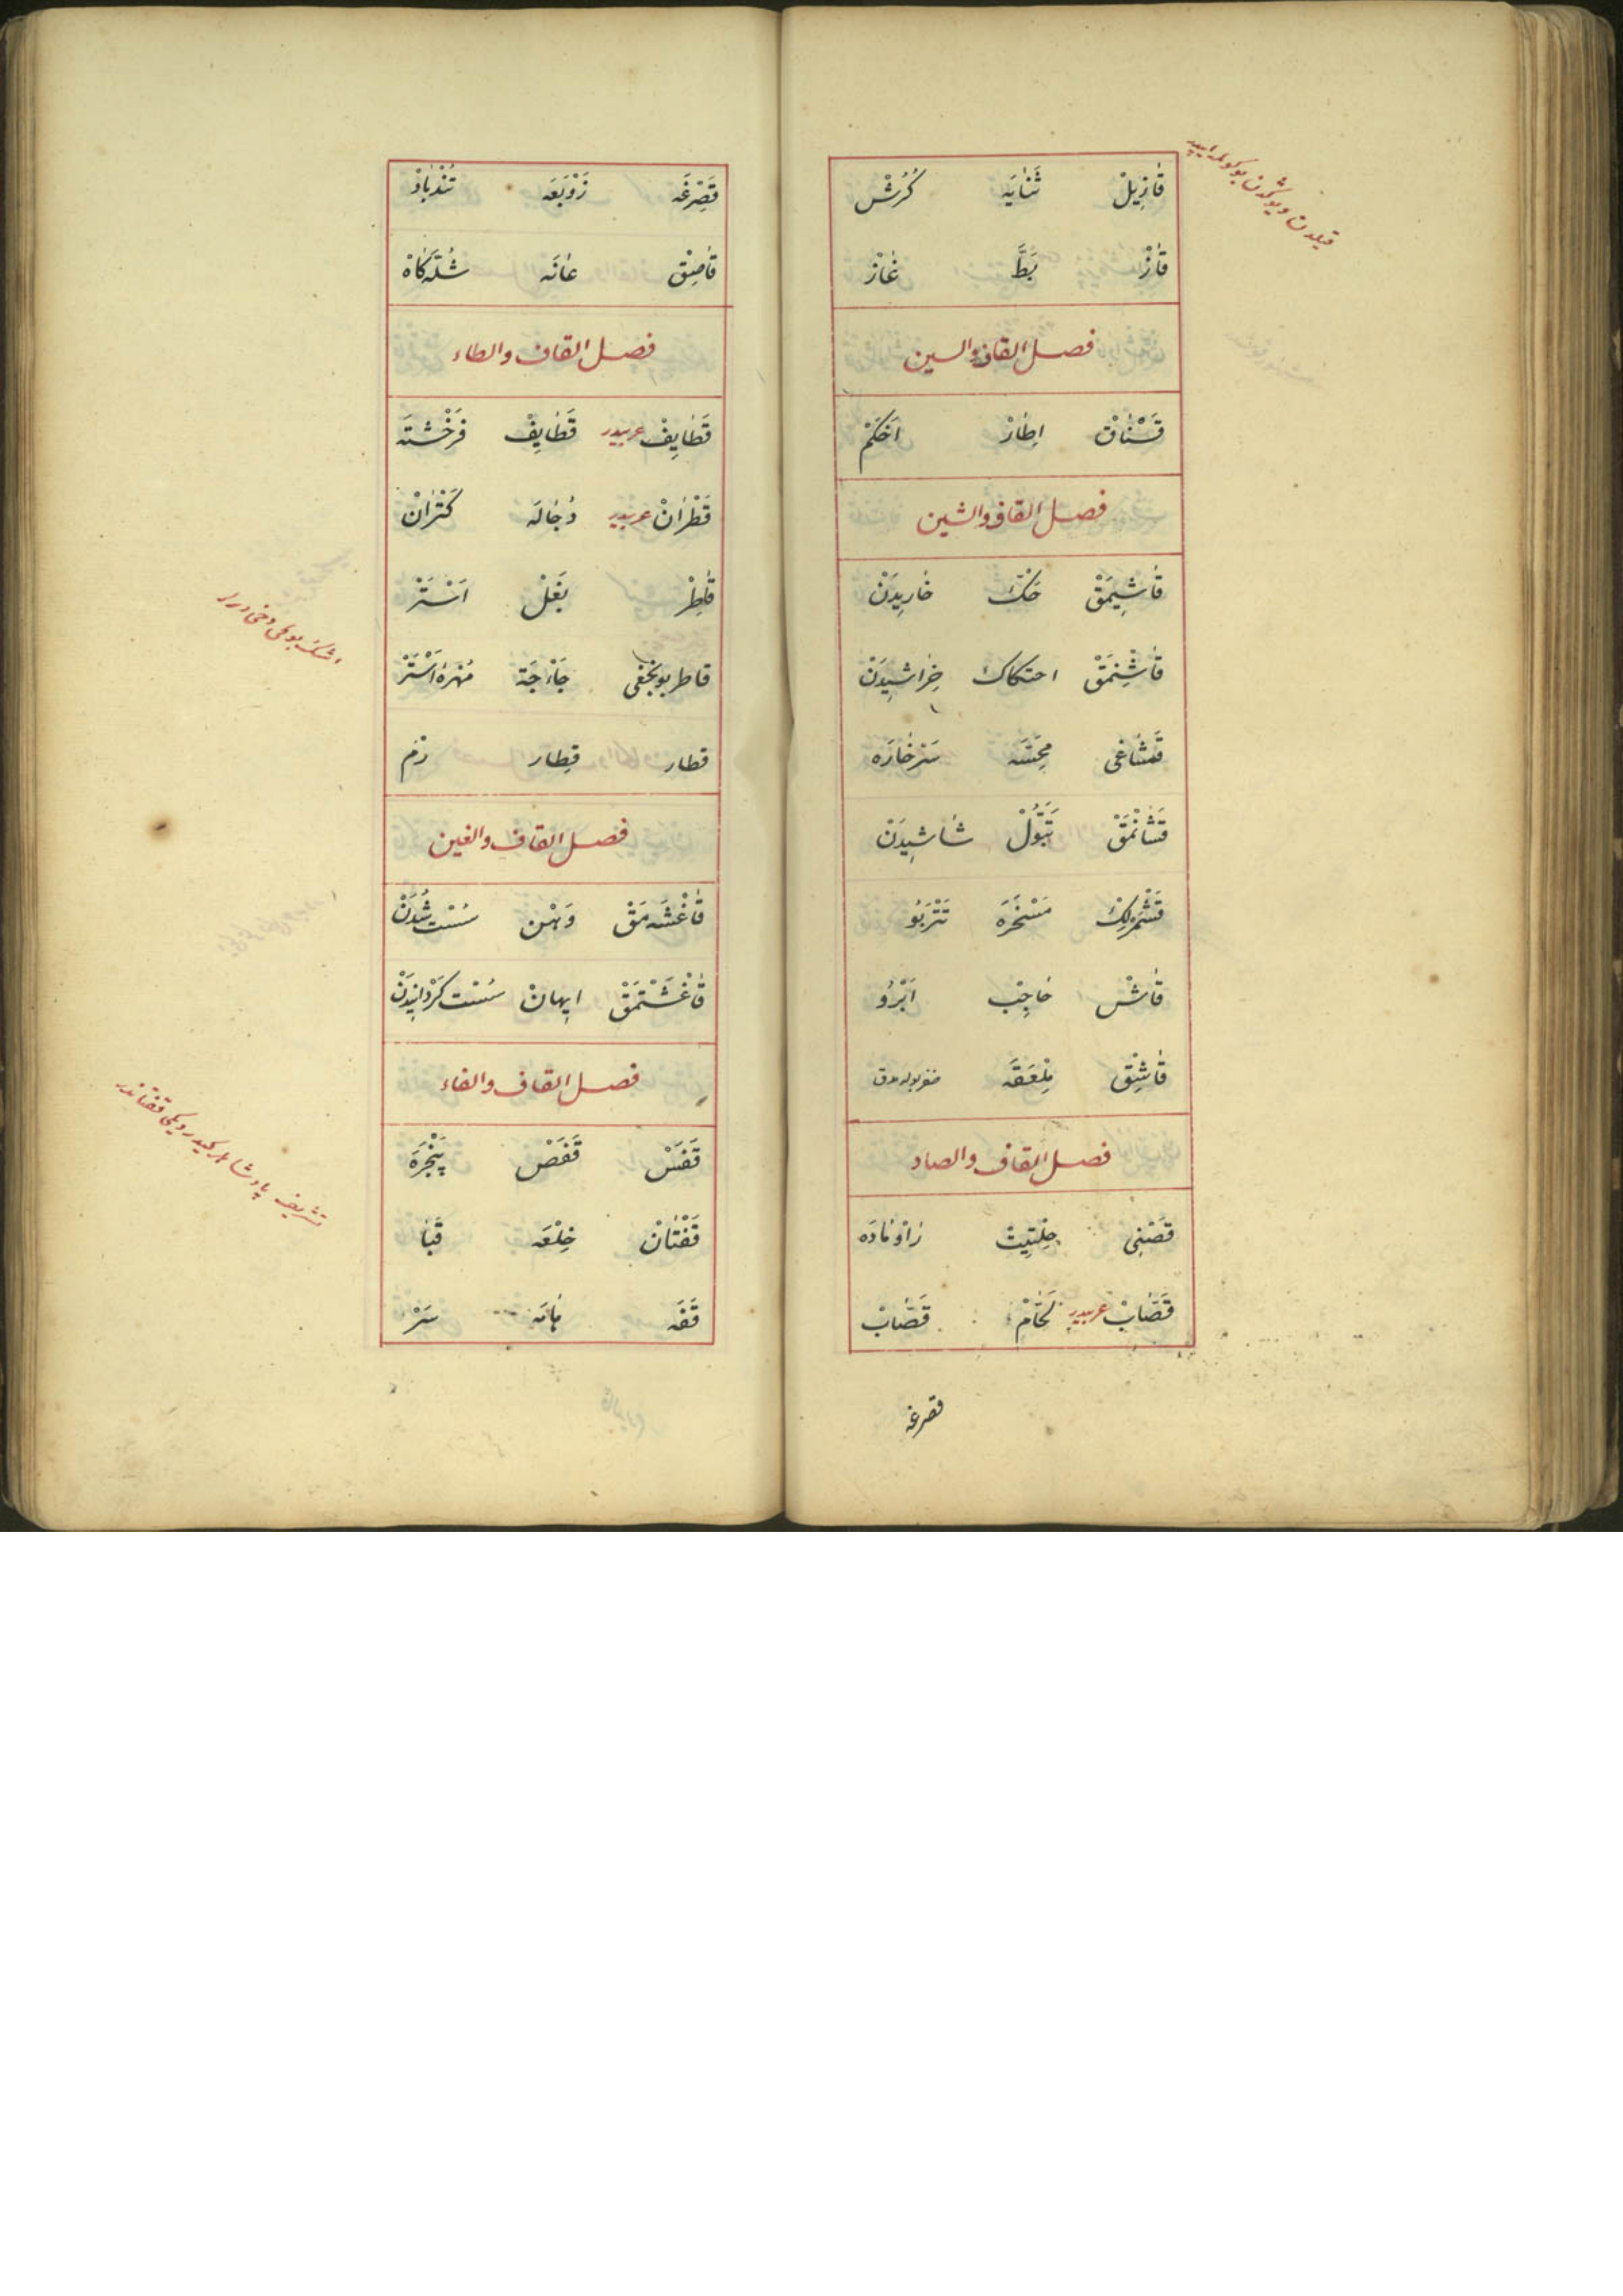 قَازِيلْ ثَنَايَه كُرُشْ
قَازْ بَطَّ غَازْ
فصل القاف والسين
قَسْنَاقْ اِطَارْ اَخْكَمْ
فصل القاف والشين
قَاشِيمَقْ حَكّْ خَارِيدَنْ
قَاشِنْمَقْ احتكاك خِرَاشِيدَنْ
قَشَاغِى مِحَسَّه سَرْخَارَه
قَشَانْمَقْ تَبَوُّلْ شَاشِيدَنْ
قَشْمَرْلِكْ مَسْخَرَه تَتَرْبُو
قَاشْ حَاجِبْ اَبْرُو
قَاشِقْ مِلْعَقَه
فصل القاف والصاد
قَصْنِى حِلْتِيتْ زَاوْمَادَه
قَصَّابْ عربيدر لَحَّامْ قَصَّابْ
قصرغه
قَصِرْغَه زَوْبَعَه تُنْدْبَادْ
قَاصِقْ عَانَه شُلَّه كَاهْ
فصل القاف والطاء
قَطَايِفْ عربيدر قَطَايِفْ فَرَخْشَتَه
قَطْرَانْ عربيدر دُجَالَه كَتْرَانْ
قَاطِرْ بَغْلْ اَسْتَرْ
قاطر بونجغى مُهْرَه اَسْتَرْ
قطار قِطار
فصل القاف والغين
قَاغْشَه مَقْ وَهْن سُسْت شُدَنْ
قَاغْشَتْمَقْ ايهانْ سُسْت كَرْدَانِيدَنْ
فصل القاف والفاء
قَفَسْ قَفَصْ پَنْجَرَه
قَفْتَانْ خِلْعَه قَبَا
قَفَه هَامَه سَرْ
تشريف پادشاهلر كيدرديكى قفتاندر